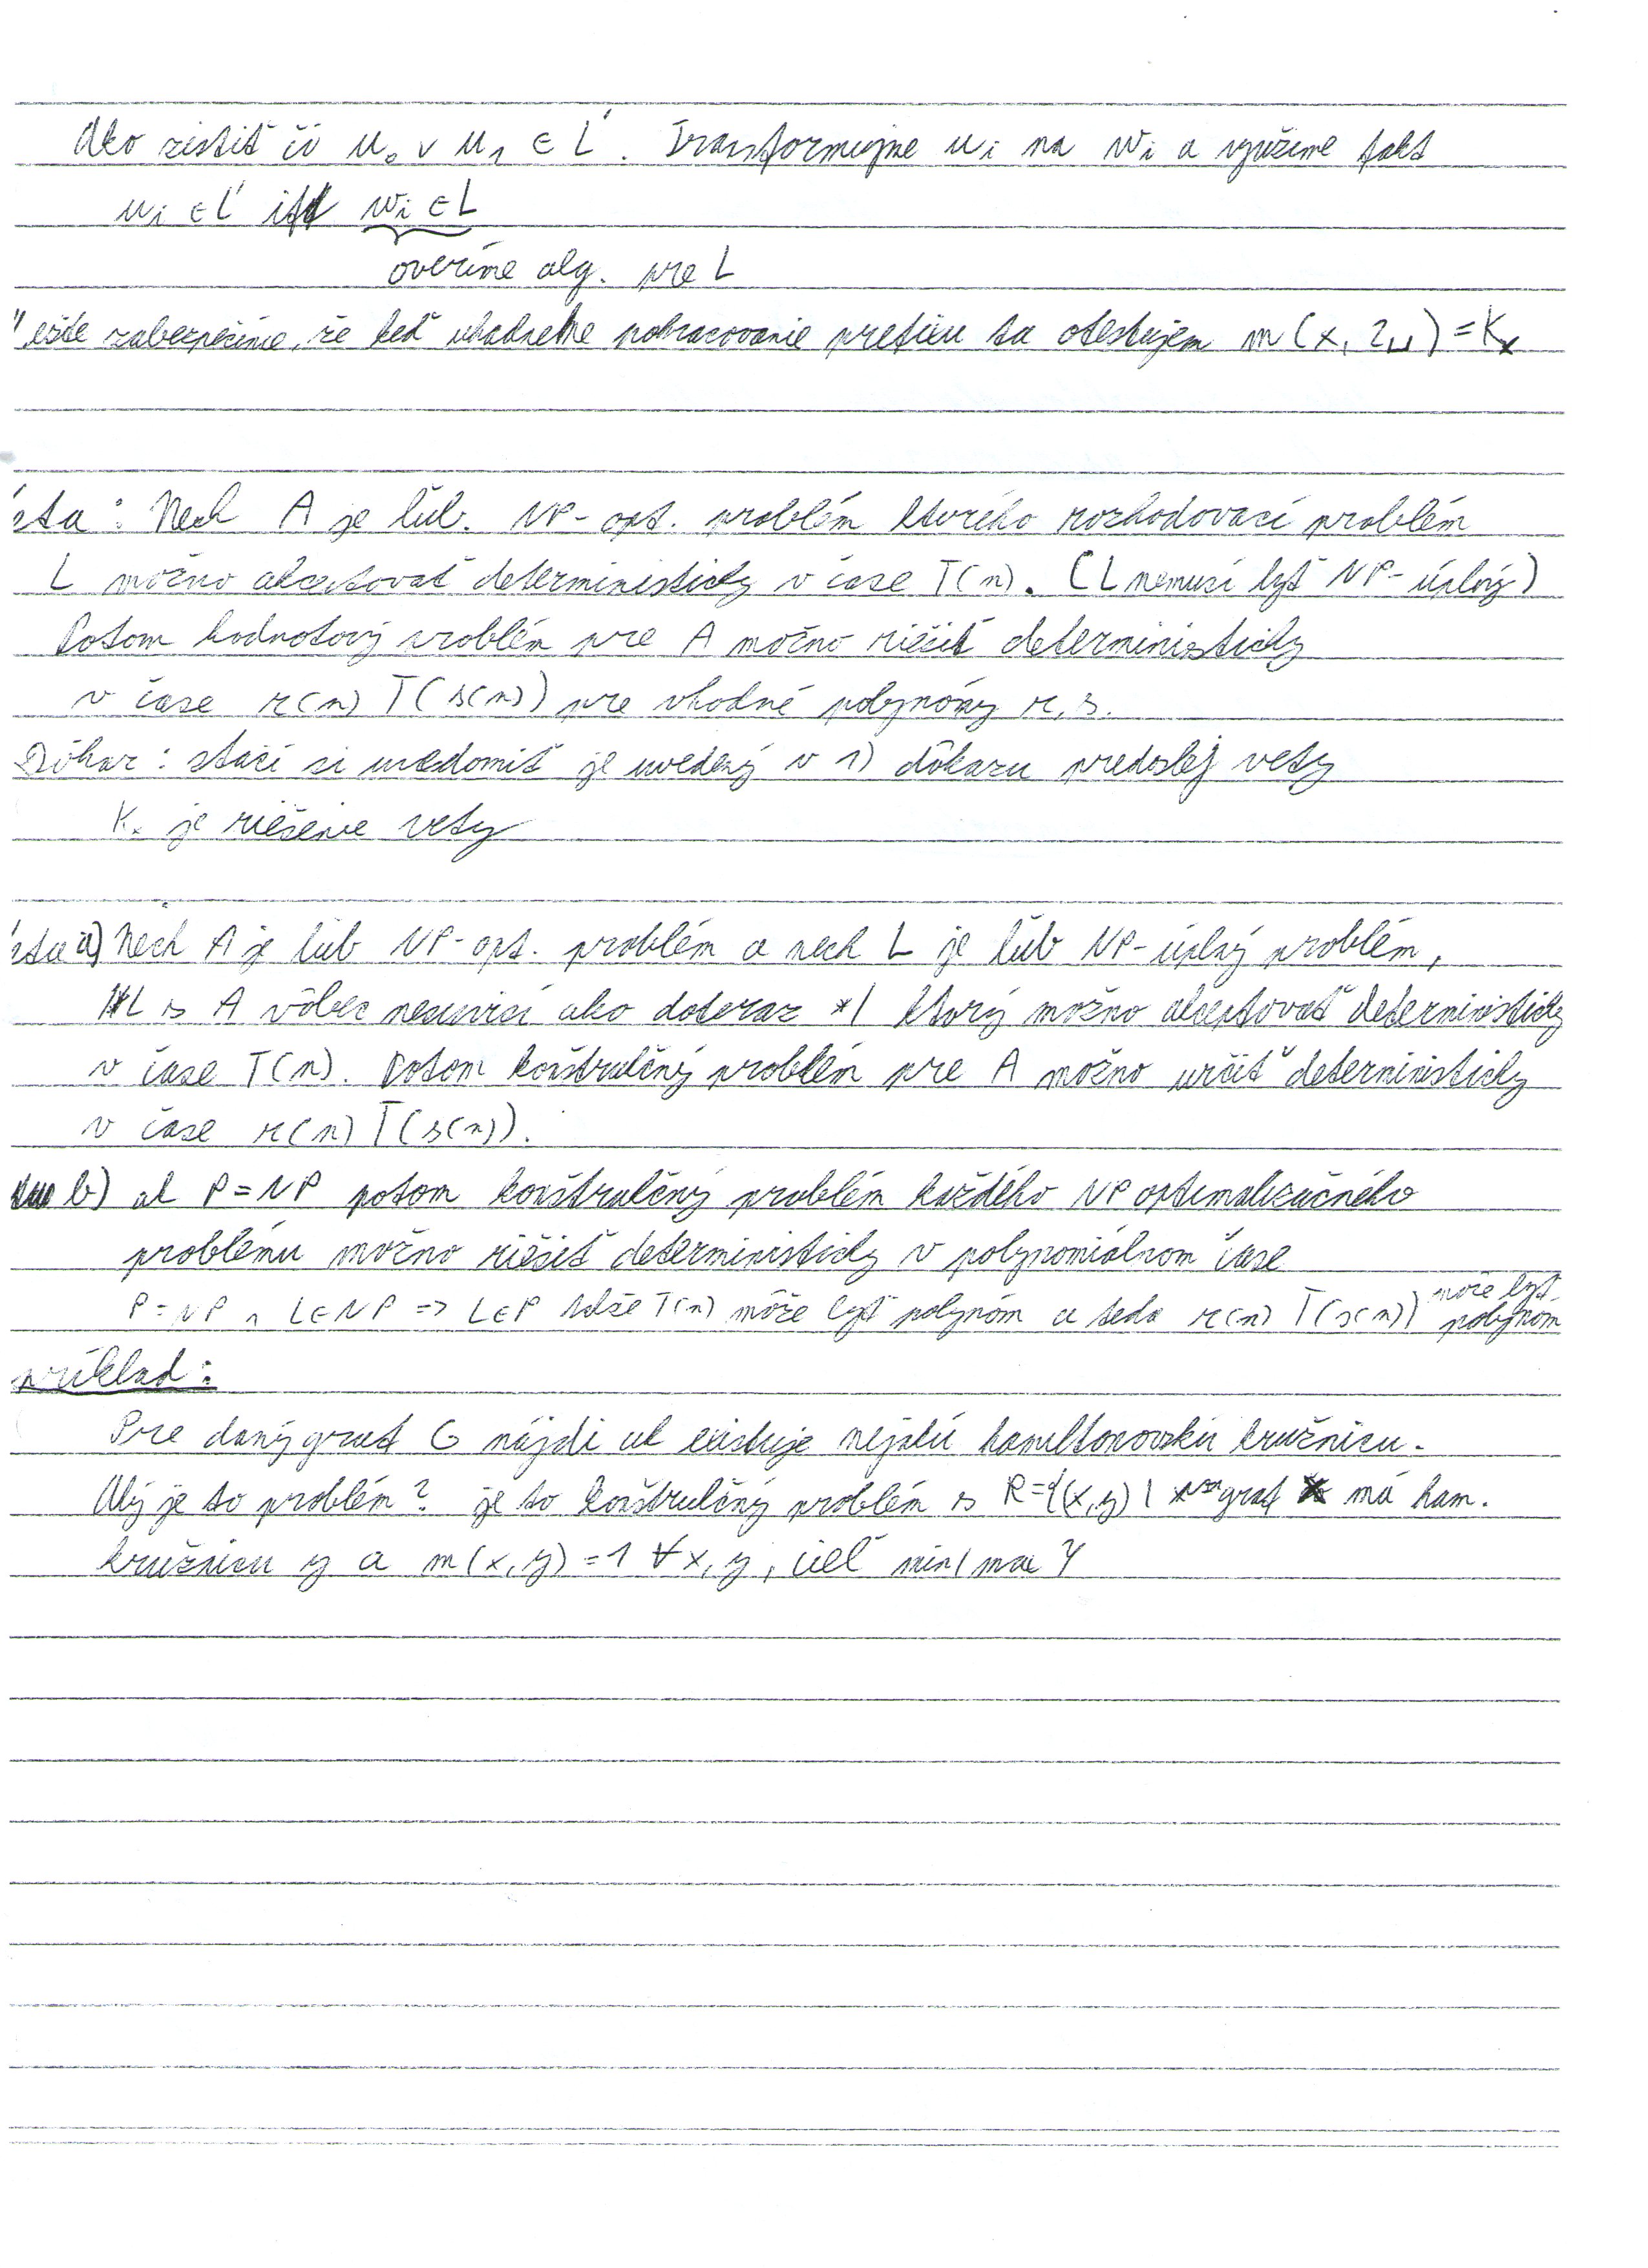 Ako zistiť či u₀ v u₁ ∈ L'. Transformujme uᵢ na wᵢ a využime fakt
uᵢ ∈ L' iff wᵢ ∈ L
overíme alg. pre L
ešte zabezpečíme, že keď uhádneme pokračovanie prefixu sa otestujem m(x, zu) = Kₓ
eta: Nech A je ľub. NP-opt. problém ktorého rozhodovací problém
L možno akceptovať deterministicky v čase T(n). (L nemusí byť NP-úplný)
Potom hodnotový problém pre A možno riešiť deterministicky
v čase r(n) T(s(n)) pre vhodné polynómy r, s.
Dôkaz: stačí si uvedomiť je uvedený v 1) dôkazu predošlej vety
Kₓ je riešenie vety
eta a) Nech A je ľub NP-opt. problém a nech L je ľub NP-úplný problém,
L s A vôbec nesúvisí ako doteraz *| ktorý možno akceptovať deterministicky
v čase T(n). Potom konštrukčný problém pre A možno určiť deterministicky
v čase r(n) T(s(n)).
b) ak P=NP potom konštrukčný problém každého NP optimalizačného
problému možno riešiť deterministicky v polynomiálnom čase
P=NP ∧ L∈NP => L∈P takže T(n) môže byť polynóm a teda r(n) T(s(n)) môže byť polynom
príklad:
Pre daný graf G nájdi ak existuje nejakú hamiltonovskú kružnicu.
Aký je to problém? je to konštrukčný problém s R={(x,y) | graf x má ham.
kružnicu y a m(x,y)=1 ∀x,y, cieľ min/max }